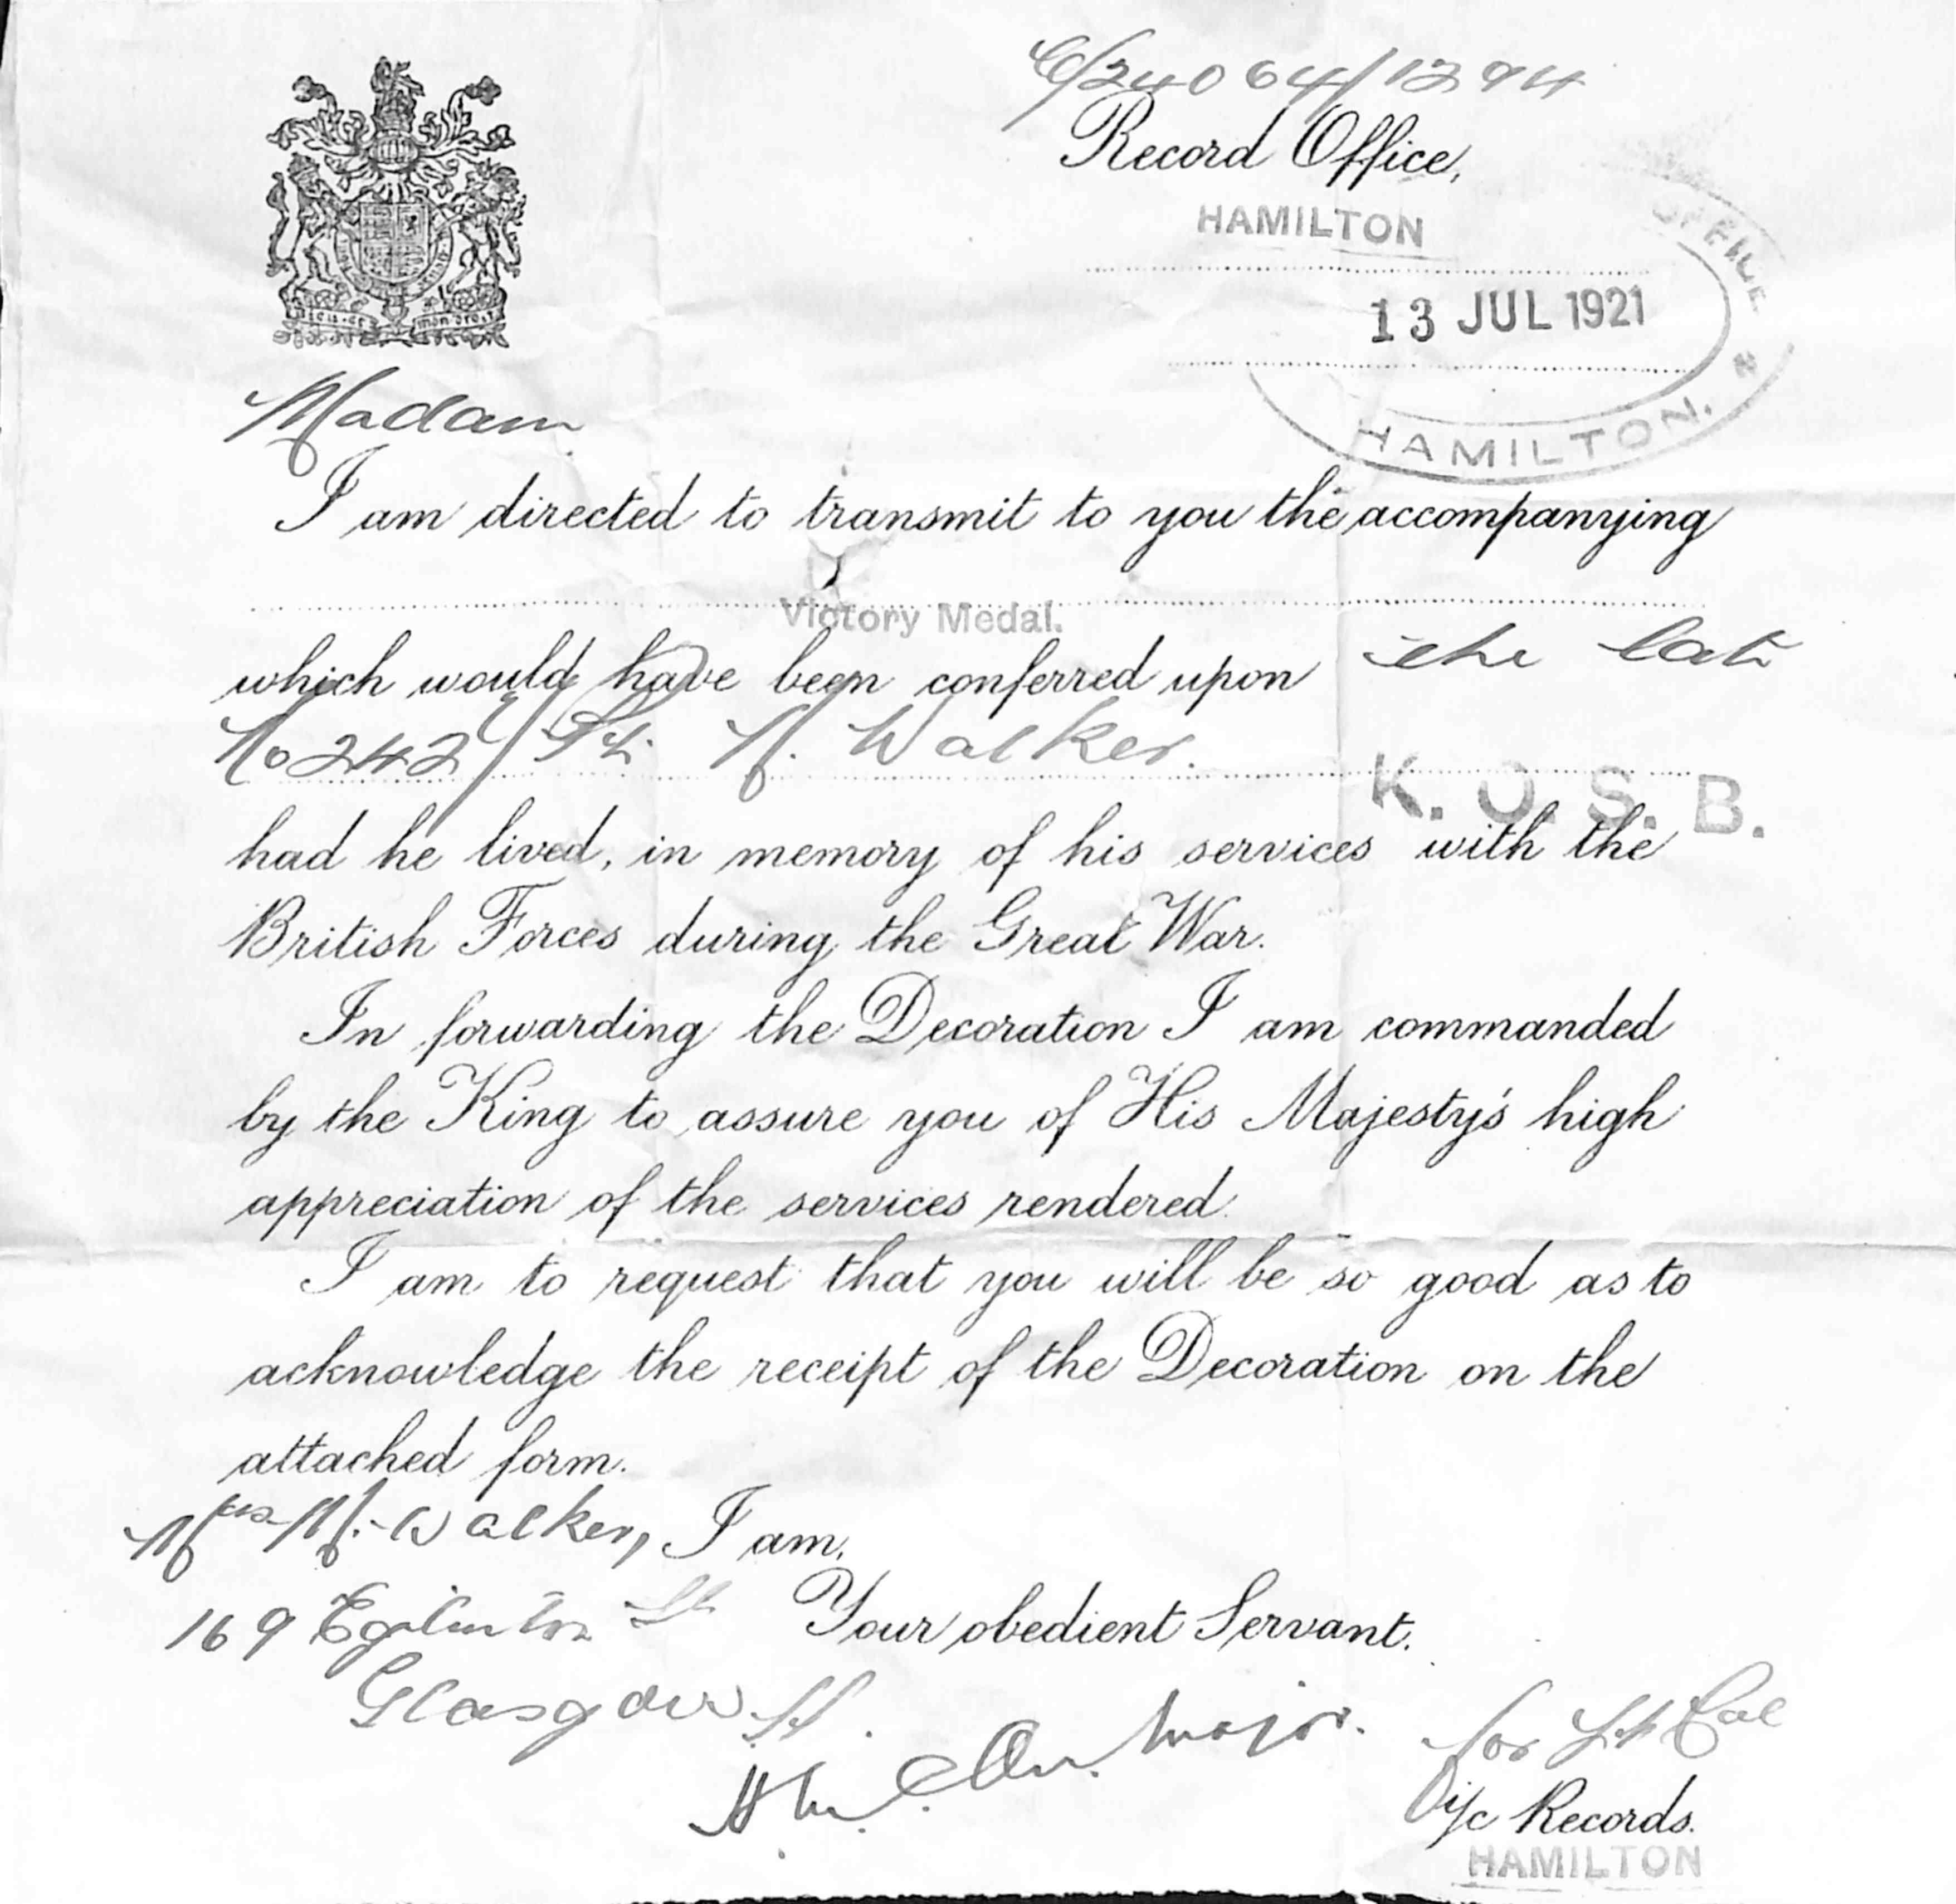 C/24064/1294
Record Office,
HAMILTON
OFFICE
13 JUL 1921
HAMILTON.
Madam
I am directed to transmit to you the accompanying
Victory Medal.
which would have been conferred upon the late
Walker.
K. O. S. B.
had he lived, in memory of his services with the
British Forces during the Great War.
In forwarding the Decoration I am commanded
by the King to assure you of His Majesty's high
appreciation of the services rendered.
I am to request that you will be so good as to
acknowledge the receipt of the Decoration on the
attached form.
Mrs M. Walker, I am,
169 Eglinton St Your obedient Servant.
Glasgow
Major. for Lt Col
i/c Records.
HAMILTON